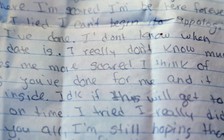 here I'm scared I'm be here forever
I tried I cant begin to apologize
I've done. I don't know when
date is. I really don't know mu
me most scared I think of
you've done for me and it
inside. Idk if this will get
on time. I tried I really d
you all, I'm still hoping